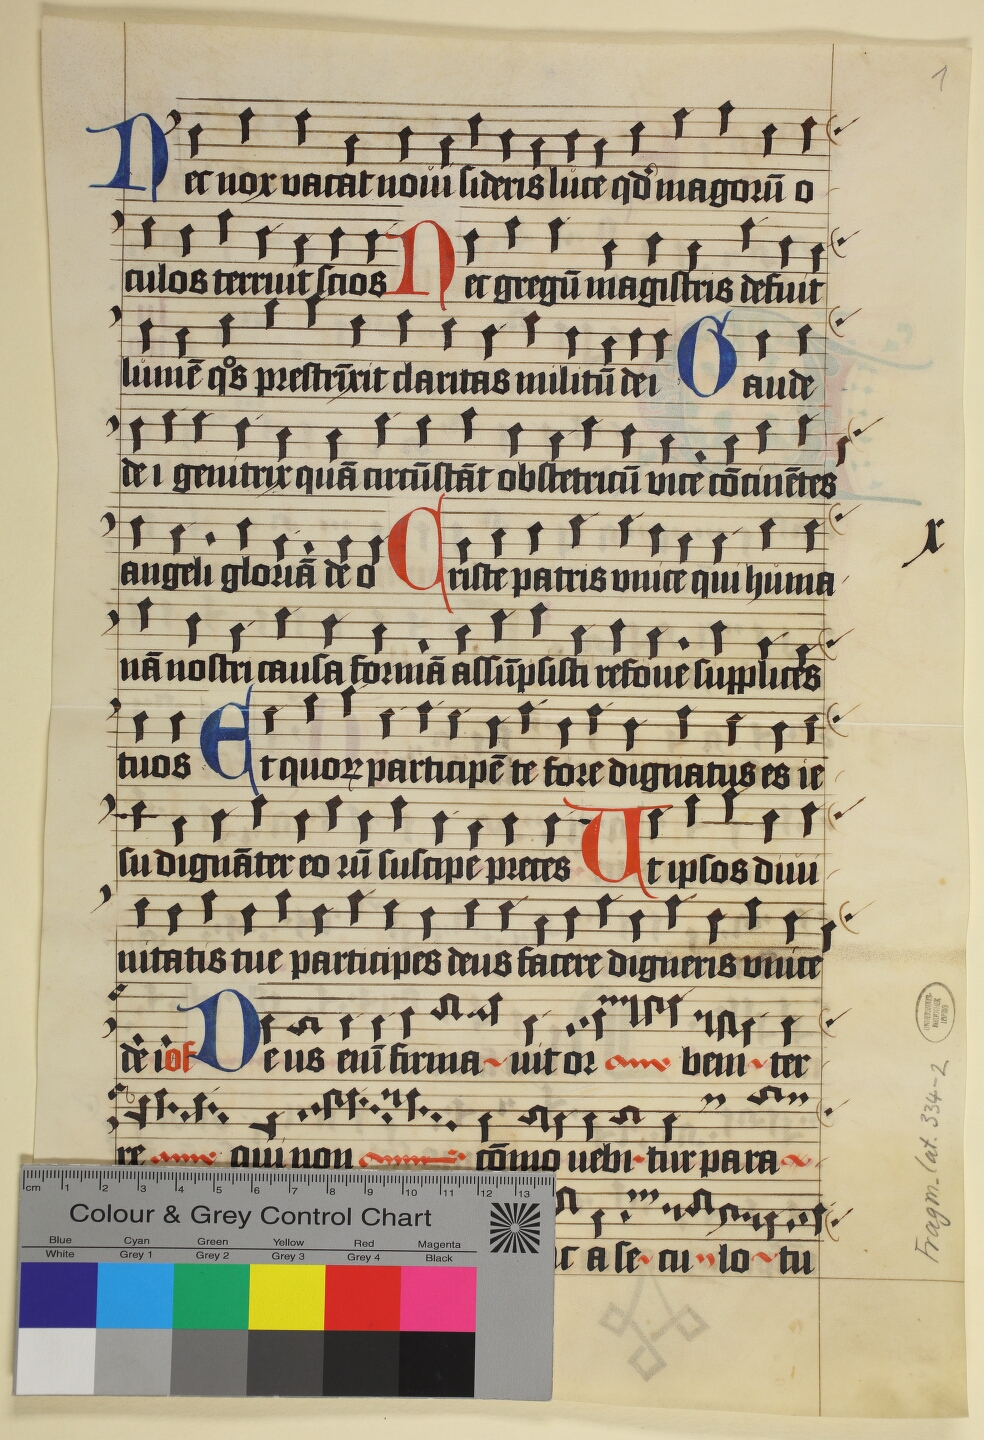 1
Nec nox vacat noui sideris luce qd̛ magoꝝ̄ o
culos terruit scios Nec gregū magistris defuit
lumē qͦs prestrīxit claritas militū dei Gaude
de i genitrix quā circūstāt obstetricū vice cōcinētes
angeli gloriā de o Criste patris vnice qui huma
x
nā nostri causa formā assūpsisti refoue supplices
tuos Et quoꝝ participē te fore dignatus es ie
su dignāter eo rū suscipe preces Ut ipsos diui
nitatis tue participes deus facere digneris vnice
de i of Deus enī firma uit or bem ter
re qui non cōmo uebi tur para
a se cu lo tu
Fragm. lat. 334-2
cm 1 2 3 4 5 6 7 8 9 10 11 12 13
Colour & Grey Control Chart
Blue Cyan Green Yellow Red Magenta
White Grey 1 Grey 2 Grey 3 Grey 4 Black